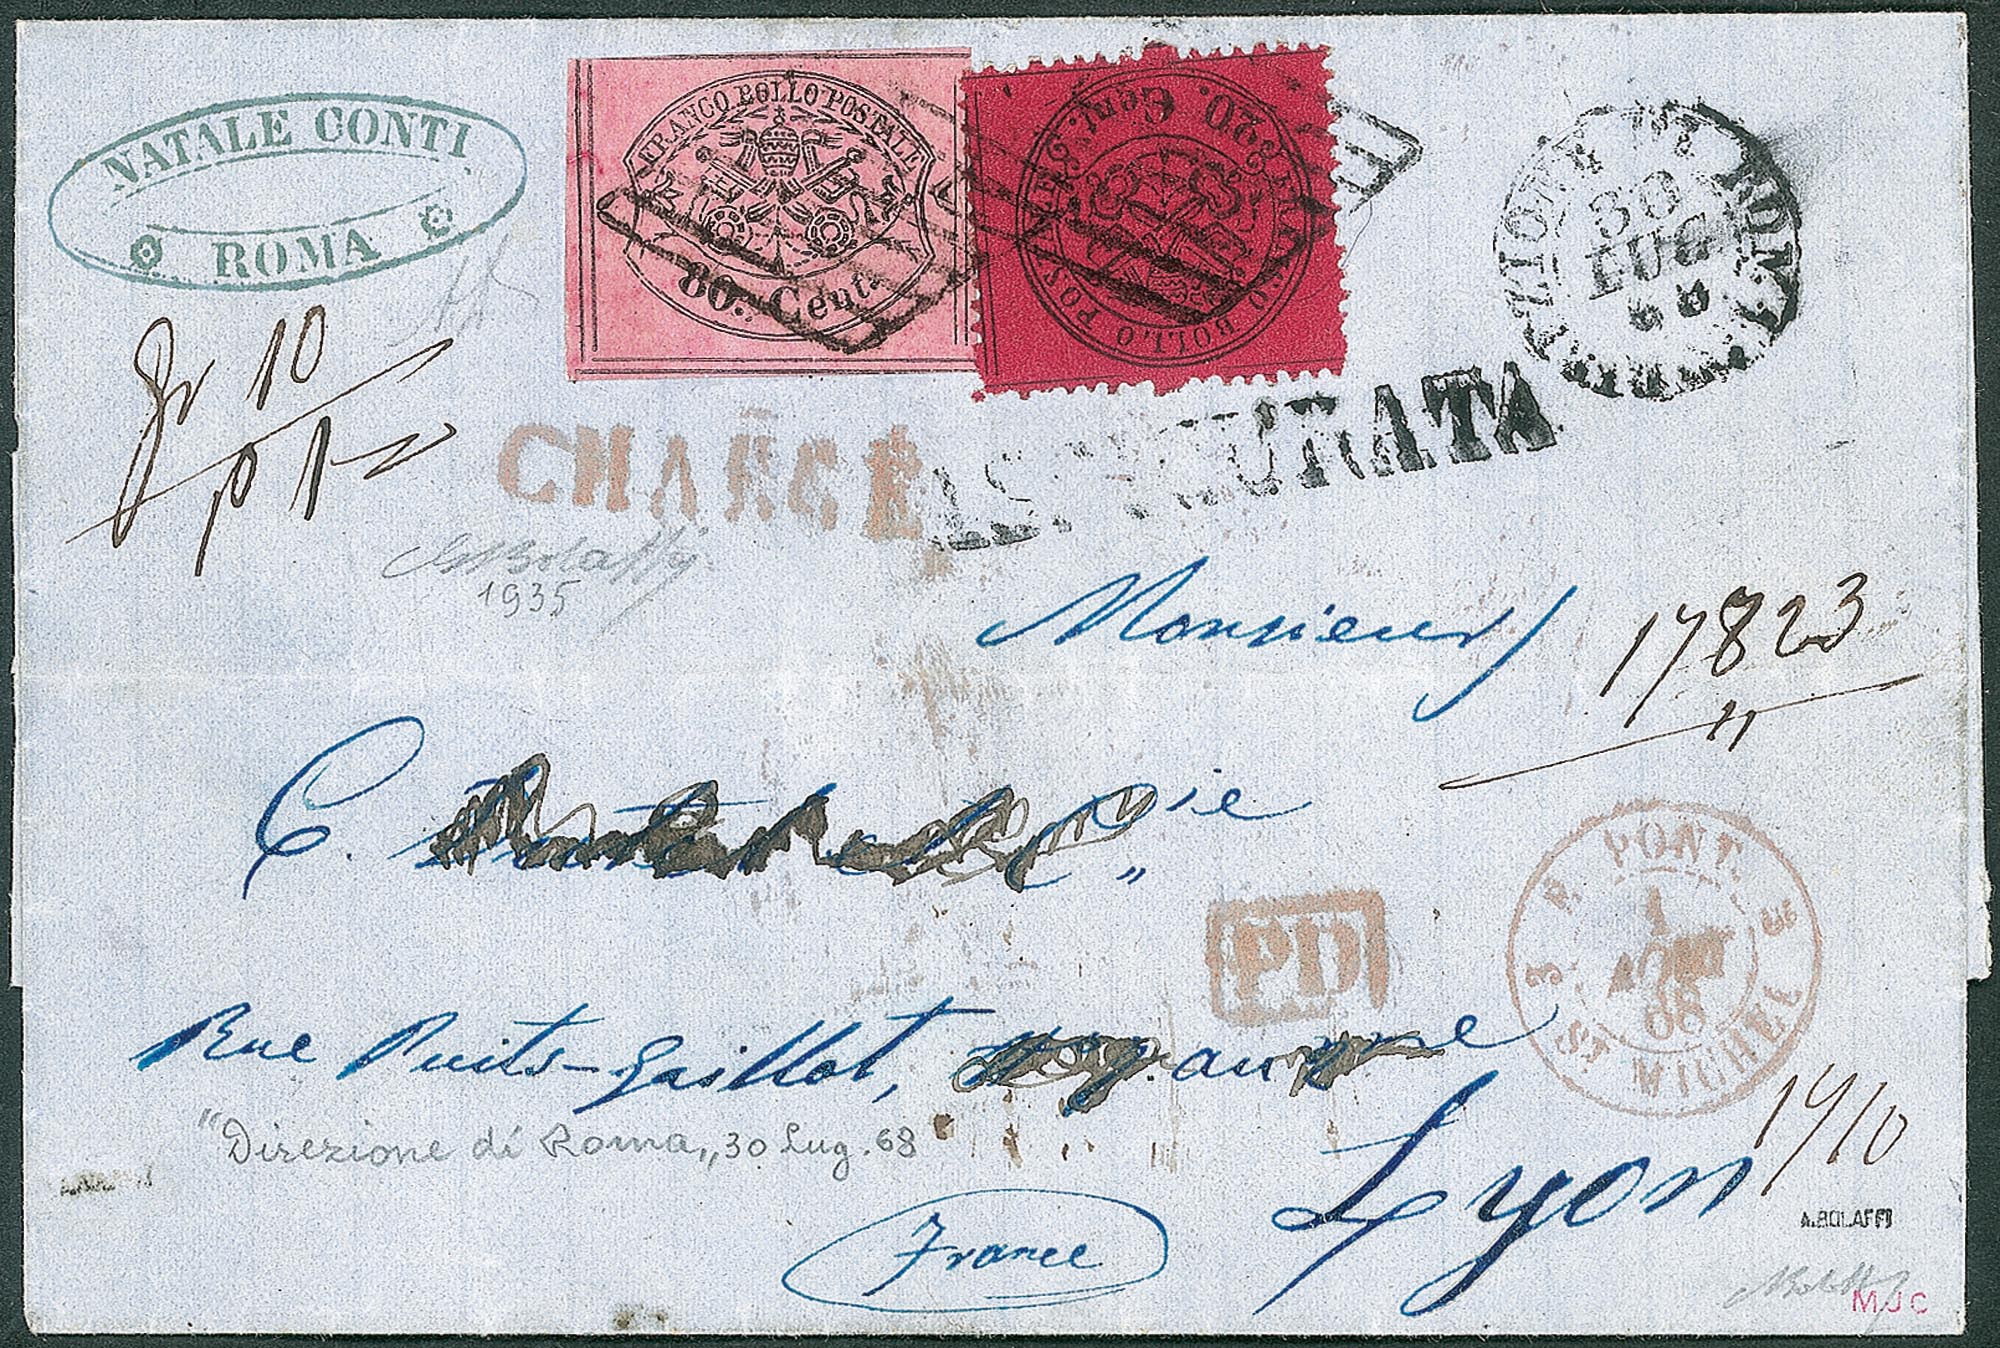 NATALE CONTI
ROMA
FRANCO BOLLO POSTALE
80. Cent.
20. Cent.
FRANCO BOLLO POSTALE
30
LUG
68
gr 10
p 1
CHARGÉ
ASSICURATA
1935
Monsieur
17823
C. Cie
3 E. PONT. 3 E
1
AOUT
68
ST MICHEL
PD
Rue Puits-Gaillot,
"Direzione di Roma„ 30 Lug. 68
Lyon
France
A.BOLAFFI
MJC